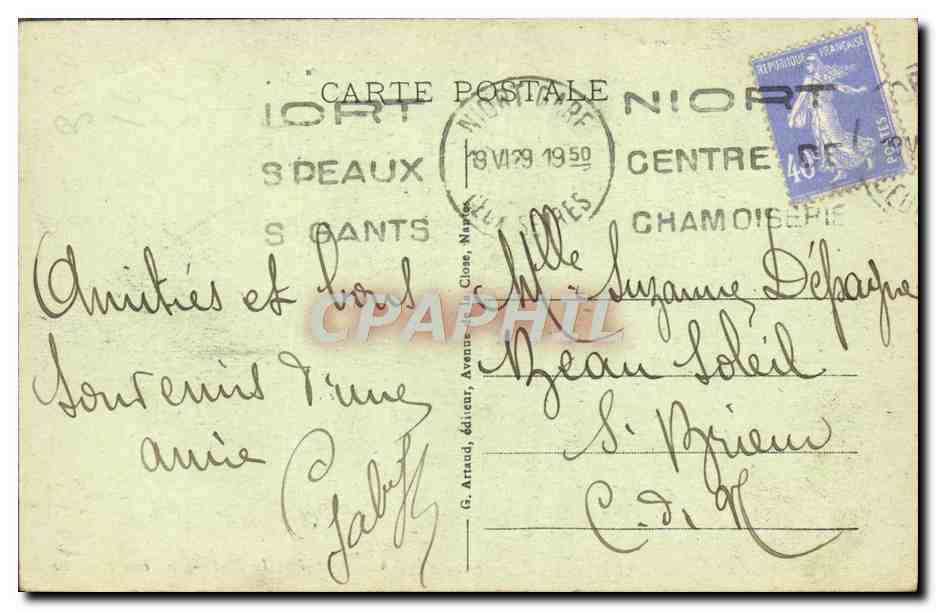 CARTE POSTALE
IORT
S PEAUX
S GANTS
NIORT GARE
19 VI 29 19 50
DEUX SEVRES
NIORT
CENTRE DE
CHAMOISERIE
REPUBLIQUE FRANÇAISE
POSTES
40c
Amitiés et bons
souvenirs d'une
amie
Gaby
G. Artaud, éditeur, Avenue de la Close, Nantes
Mlle Suzanne Dépagne
Beau Soleil
St Brieuc
C. d. N
CPAPHIL